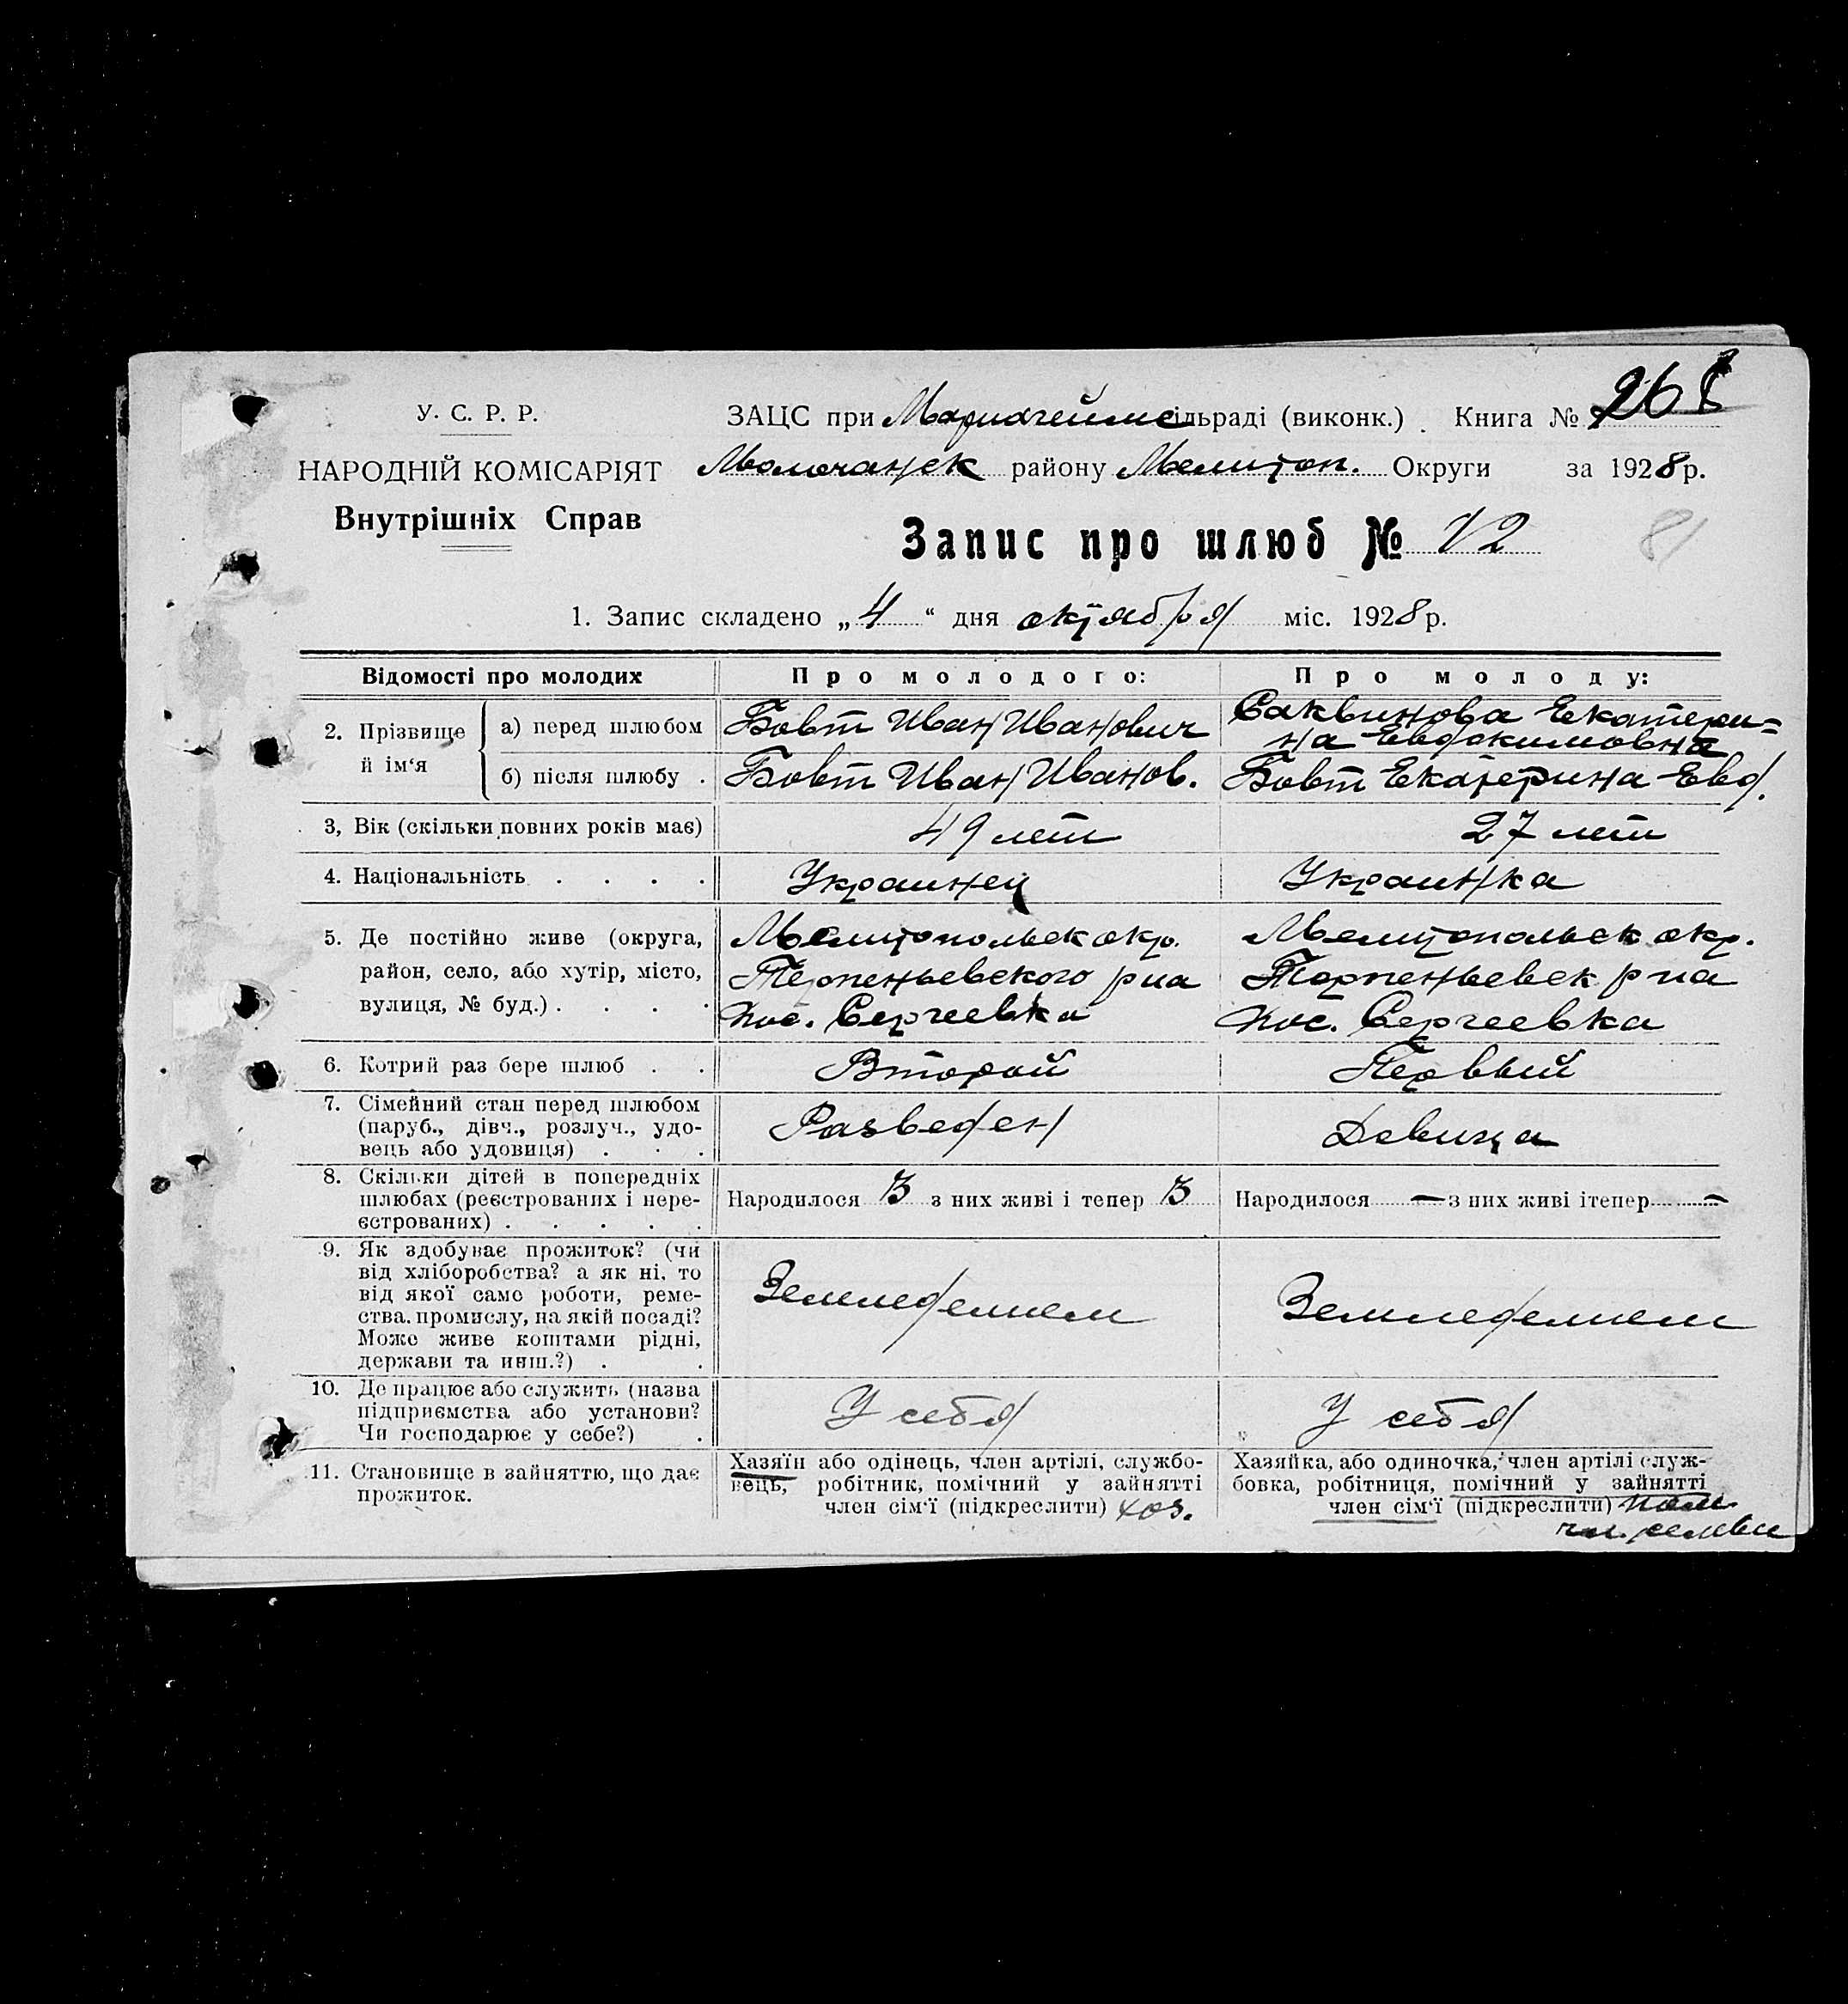 У. С. Р. Р.
НАРОДНІЙ КОМІСАРІЯТ
Внутрішніх Справ
ЗАЦС при Мариагеймс ільраді (виконк.) Книга № 268
Молочанск району Мелитоп. Округи за 1928 р.
Запис про шлюб № 12
81
1. Запис складено „4“ дня октября міс. 1928 р.
Відомості про молодих
Про молодого:
Про молоду:
2. Прізвище й ім‘я
а) перед шлюбом
Бовт Иван Иванович
Саквинова Екатери=
на Евдокимовна
б) після шлюбу .
Бовт Иван Иванов.
Бовт Екатерина Евд.
3, Вік (скільки повних років має)
49 лет
27 лет
4. Національність . . . .
Украинец
Украинка
5. Де постійно живе (округа,
район, село, або хутір, місто,
вулиця, № буд.) . . . .
Мелитопольск окр.
Терпеньевского р на
пос. Сергеевка
Мелитопольск окр.
Терпеньевск р на
пос. Сергеевка
6. Котрий раз бере шлюб . .
Второй
Первый
7. Сімейний стан перед шлюбом
(паруб., дівч., розлуч., удо-
вець або удовиця) . . .
Разведен
Девица
8. Скільки дітей в попередніх
шлюбах (реєстрованих і нере-
єстрованих) . . . . .
Народилося 3 з них живі і тепер 3
Народилося — з них живі ітепер —
9. Як здобуває прожиток? (чи
від хліборобства? а як ні, то
від якої саме роботи, реме-
ства, промислу, на якій посаді?
Може живе коштами рідні,
держави та инш.?) . .
Земледелием
Земледелием
10. Де працює або служить (назва
підприємства або установи?
Чи господарює у себе?) .
У себя
У себя
11. Становище в зайняттю, що дає
прожиток.
Хазяїн або одінець, член артілі, службо-
вець, робітник, помічний у зайнятті
член сім‘ї (підкреслити) хоз.
Хазяйка, або одиночка, член артілі служ-
бовка, робітниця, помічний у зайнятті
член сім‘ї (підкреслити) пом.
чл. семьи